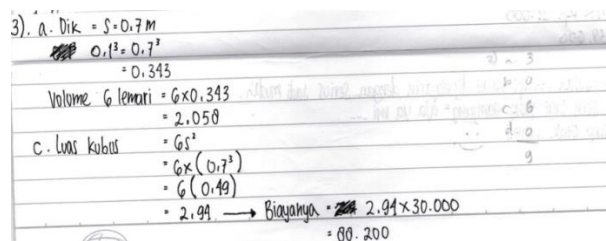 3). a. Dik = S = 0.7 m
0.1³ = 0.7³
= 0.343
Volume 6 lemari = 6x0.343
= 2.058
C. Luas kubus = 6s²
= 6x(0.7³)
= 6(0.49)
= 2.94 → Biayanya = 2.94 x 30.000
= 88.200
3) a 3
b 0
c 6
d 0
9